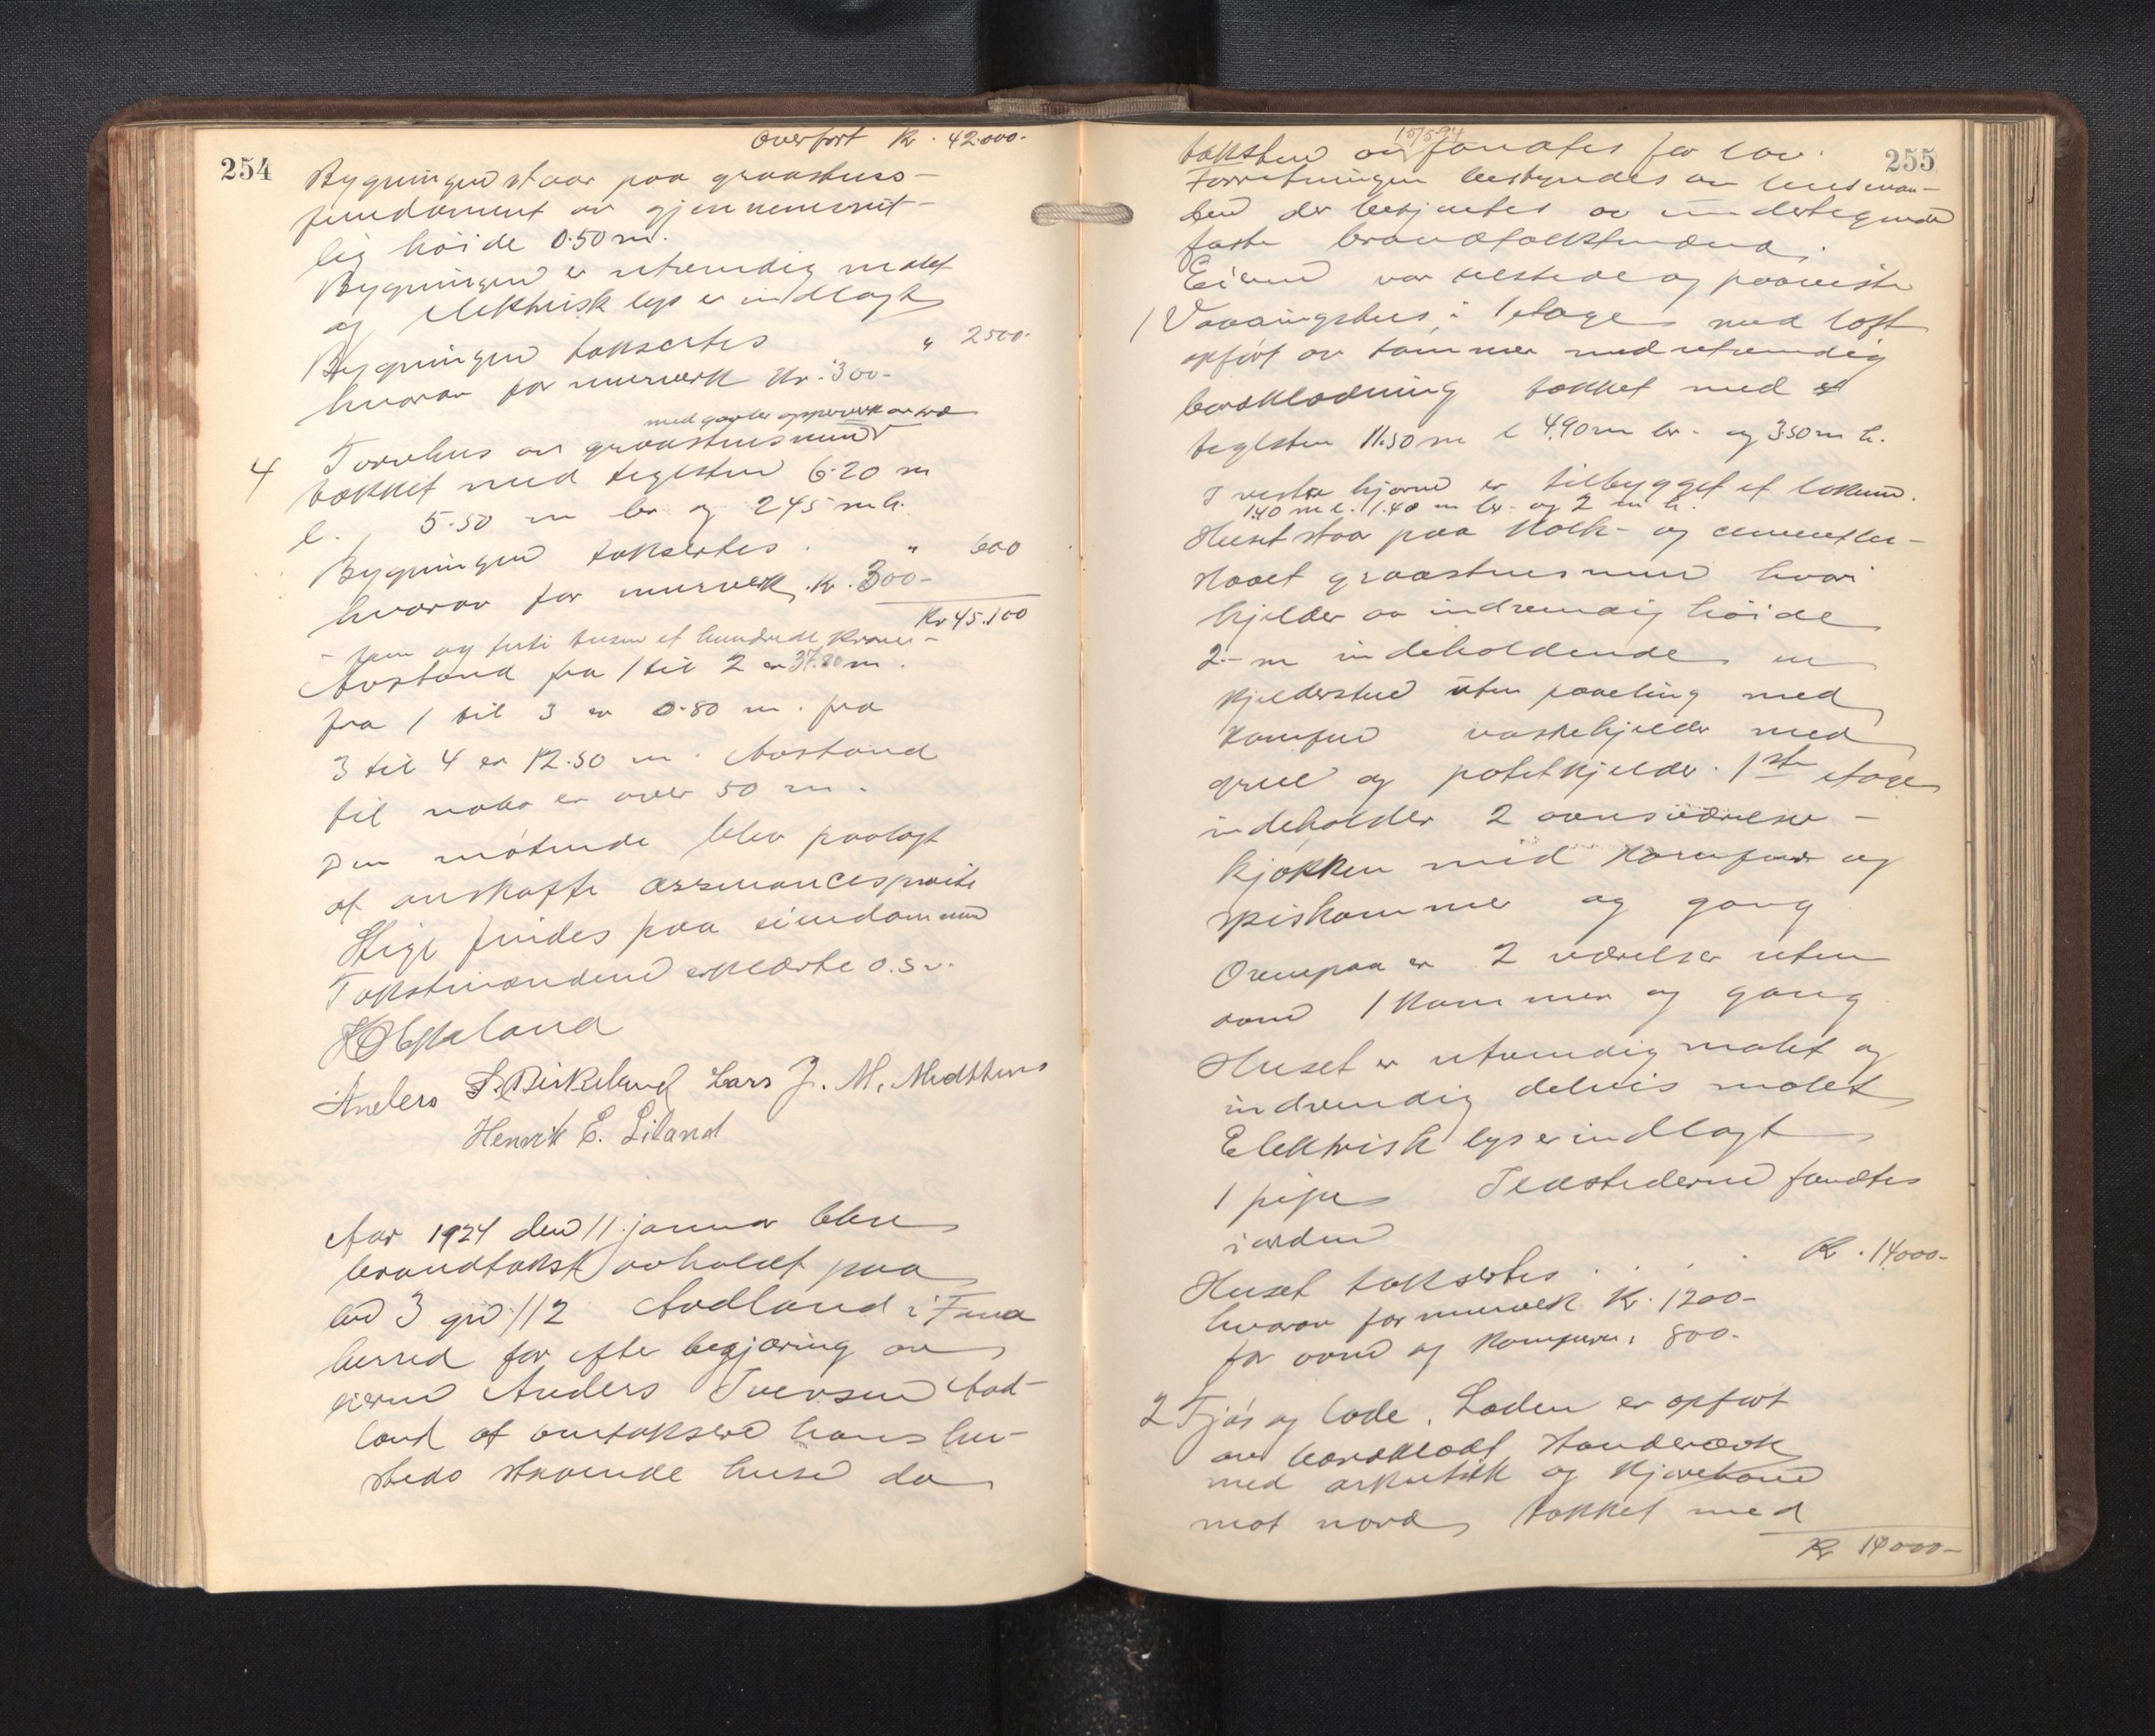 254
Overført Kr. 42.000.-
Bygningen staar paa graastens-
fundament av gjennemsnit-
lig höide 0.50 m.
Bygningen er utvendig malet
og elektrisk lys er indlagt
Bygningen takseres " 2500.-
hvorav for murverk Kr. 300.-
med gavler oppverk av træ
4 Torvhus av graastensmur
tækket med teglsten 6.20 m
l. 5.50 m br og 2.45 m h.
Bygningen taksertes . " 600
hvorav for murverk. Kr. 300.-
Kr 45.100
- fem og firti tusen et hundrede kroner -
Avstand fra 1 til 2 er 37.80 m.
fra 1 til 3 er 0.80 m. fra
3 til 4 er 12.50 m. Avstand
til nabo er over 50 m.
Den mötende blev paalagt
at anskaffe assurancesprøite
Stige findes paa eiendommen
Takstmændene erklærte o.s.v.
Anders S. Birkeland Lars J. M. Midttun
Henrik E. Liland
Aar 1924 den 11 januar blev
brandtakst avholdt paa
bno 3 gno 112 Aadland i Fana
herred for efter begjæring av
eieren Anders Iversen Aad-
land at omtaksere hans her-
steds staaende huse da
255
15/5-94
taksten av fandtes for lav.
Forretningen bestyredes av lensman-
den der betjentes av undertegnede
faste brandtakstmænd.
Eieren var tilstede og paaviste
1 Vaaningshus i 1 etage med loft
opført av tømmer med utvendig
bordklædning tækket med
teglsten 11.50 m l 4.90 m br. og 3.50 m h.
I vestre hjørne er tilbygget et lokum.
1.40 m l. 1.40 m br. og 2 m h.
Huset staar paa kalk- og cementbe-
slaaet graastensmur hvori
kjelder av indvendig höide
2.- m indeholdende en
kjelderstue uten paneling med
komfur vaskekjelder med
grue og potetkjelder. 1ste etage
indeholder 2 ovnsværelser -
kjøkken med komfur og
spiskammer og gang
Ovenpaa er 2 værelser uten
ovn 1 kammer og gang
Huset er utvendig malet og
indvendig delvis malet
Elektrisk lys er indlagt
1 pipe Ildstederne fandtes
i orden
Huset taksertes . . . Kr. 14000.-
hvorav for murverk Kr. 1200.-
for ovne og komfurer. 800.-
2 Fjös og lade. Laden er opført
av bordklædt standverk
med arkutstik og kjørebane
mot nord tækket med
Kr 14000.-